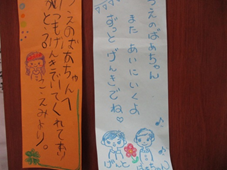 うえのばあちゃん
また あいにいくよ
ずっと げんきでね
げん
えのばあちゃんへ
いつもげんきでいてくれてあり
がとう。